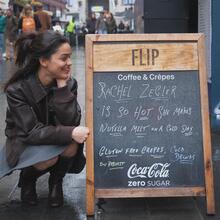 FLIP
Coffee & Crêpes
RACHEL ZEGLER
IS SO HOT SHE MAKES
NUTELLA MELT ON A COLD DAY
GLUTEN FREE CREPES
Coca-Cola
ZERO SUGAR